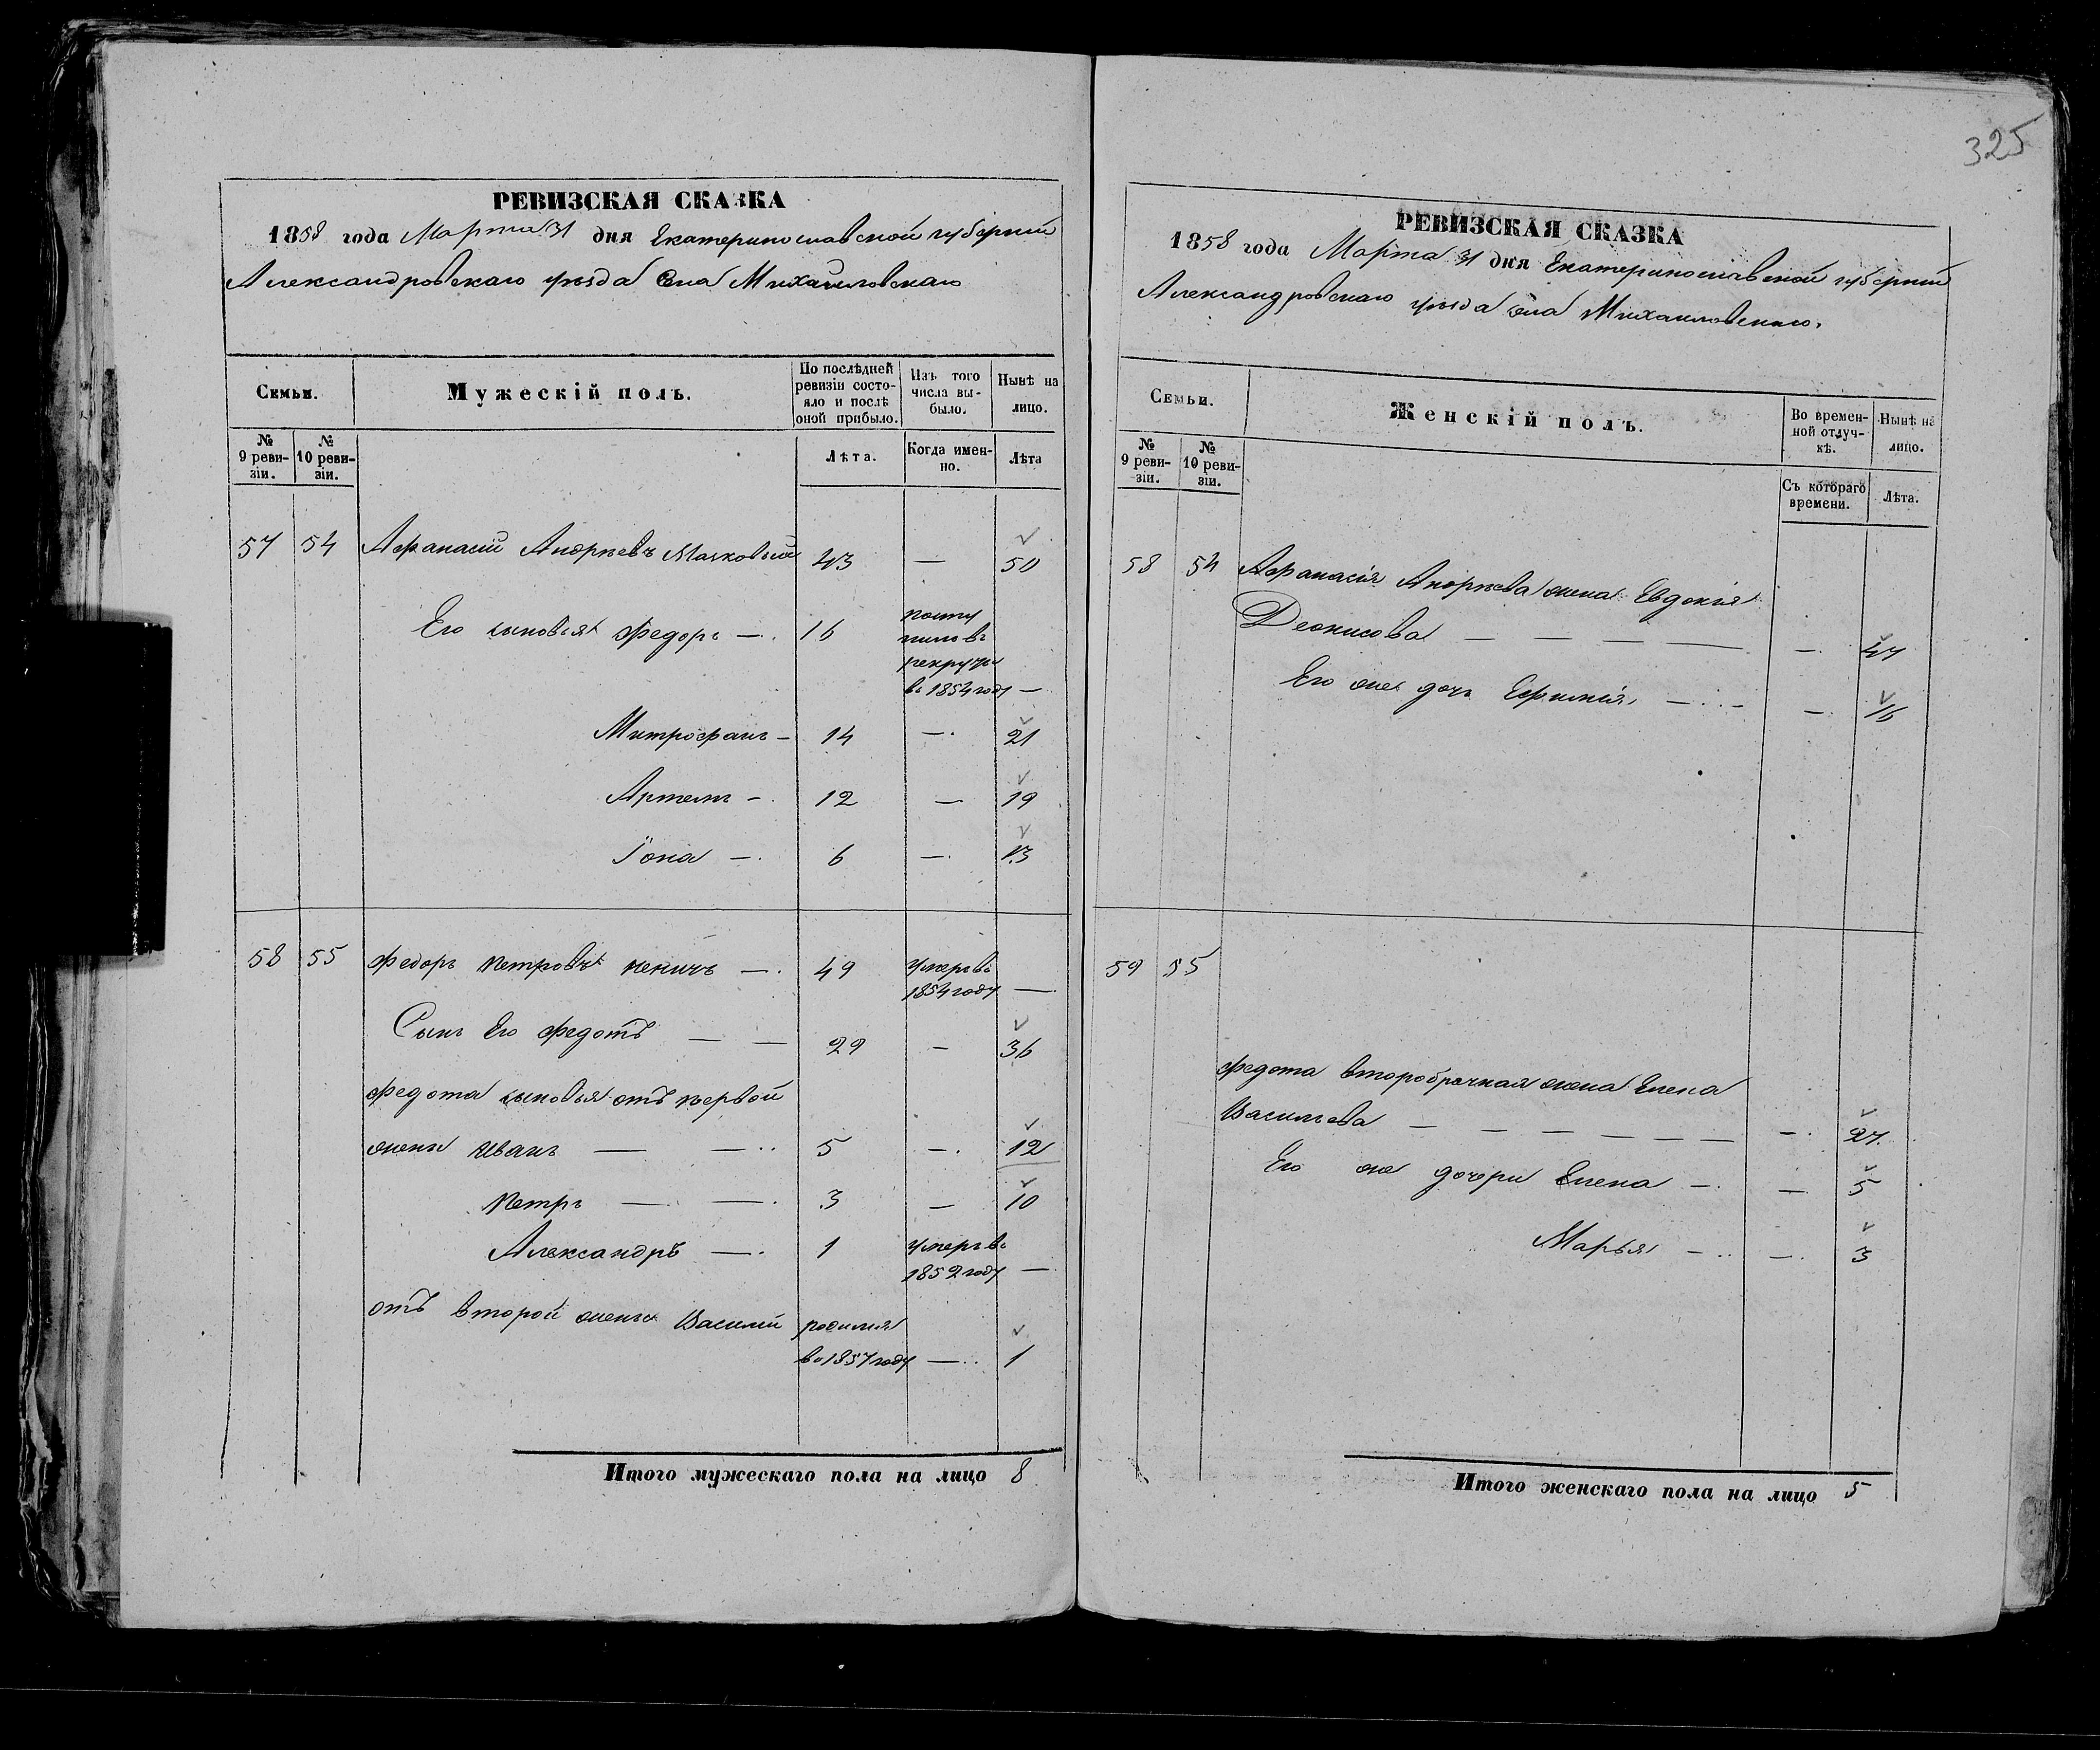 325
РЕВИЗСКАЯ СКАЗКА
1858 года Марта 31 дня Екатеринославской губернии
Александровскаго уѣзда села Михайловскаго
Семьи.
Мужескій полъ.
По послѣдней ревизіи состояло и послѣ оной прибыло.
Изъ того числа выбыло.
Нынѣ на лицо.
№ 9 ревизіи.
№ 10 ревизіи.
Лѣта.
Когда именно.
Лѣта
57 54 Афанасій Андреевъ 43 — 50
Его сыновья Федоръ — 16 поступилъ въ рекруты въ 1854 году —
Митрофанъ — 14 — 21
Артемъ — 12 — 19
Іона — 6 — 13
58 55 Федоръ Петровъ — 49 умеръ въ 1854 году —
Сынъ Его Федотъ — — 29 — 36
Федота сыновья отъ первой
жены Иванъ — — 5 — 12
Петръ — — 3 — 10
Александръ — 1 умеръ въ 1852 году —
отъ второй жены Василій родился
въ 1857 году — 1
Итого мужескаго пола на лицо 8
РЕВИЗСКАЯ СКАЗКА
1858 года Марта 31 дня Екатеринославской губернии
Александровскаго уѣзда села Михаиловскаго.
Семьи.
Женскій полъ.
Во временной отлучкѣ.
Нынѣ на лицо.
№ 9 ревизіи.
№ 10 ревизіи.
Съ котораго времени.
Лѣта.
58 54 Афанасія Андреева жена Евдокія
Деонисова — — — — — 47
Его же дочь Ефимія — — — 16
59 55
Федота второбрачная жена Елена
Васильева — — — — — — — 27
Его же дочери Елена — — 5
Марья — — 3
Итого женскаго пола на лицо 5